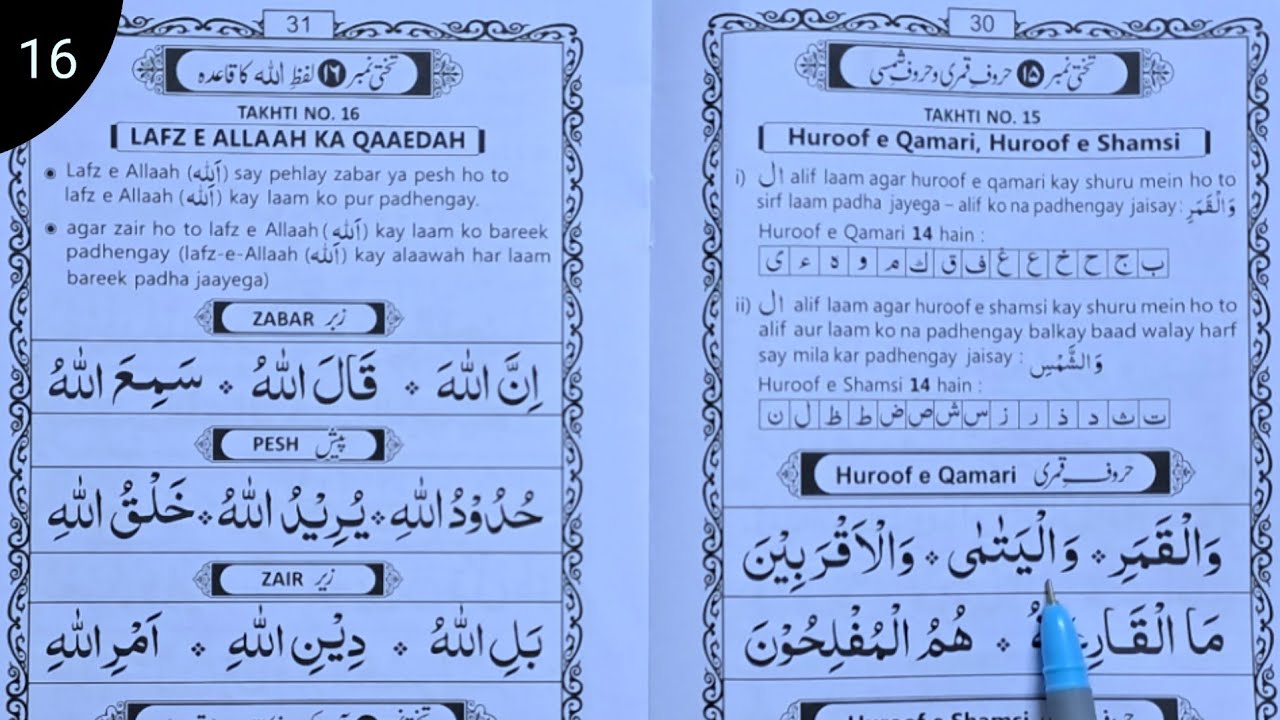 16
30
تختی نمبر ۱۵ حروفِ قمری و حروفِ شمسی
TAKHTI NO. 15
Huroof e Qamari, Huroof e Shamsi
i) ال alif laam agar huroof e qamari kay shuru mein ho to
sirf laam padha jayega – alif ko na padhengay jaisay : وَالْقَمَرِ
Huroof e Qamari 14 hain :
ب ج ح خ ع غ ف ق ك م و ه ء ی
ii) ال alif laam agar huroof e shamsi kay shuru mein ho to
alif aur laam ko na padhengay balkay baad walay harf
say mila kar padhengay jaisay : وَالشَّمْسِ
Huroof e Shamsi 14 hain :
ت ث د ذ ر ز س ش ص ض ط ظ ل ن
Huroof e Qamari حروفِ قمری
وَالْقَمَرِ ٭ وَالْيَتٰمٰى ٭ وَالْاَقْرَبِيْنَ
مَا الْقَارِعَةُ ٭ هُمُ الْمُفْلِحُوْنَ
Huroof e Shamsi
31
تختی نمبر ۱۶ لفظِ اللہ کا قاعدہ
TAKHTI NO. 16
LAFZ E ALLAAH KA QAAEDAH
• Lafz e Allaah (اَللّٰه) say pehlay zabar ya pesh ho to
lafz e Allaah (اَللّٰه) kay laam ko pur padhengay.
• agar zair ho to lafz e Allaah (اَللّٰه) kay laam ko bareek
padhengay (lafz-e-Allaah (اَللّٰه) kay alaawah har laam
bareek padha jaayega)
ZABAR زبر
اِنَّ اللّٰهَ ٭ قَالَ اللّٰهُ ٭ سَمِعَ اللّٰهُ
PESH پیش
حُدُوْدُ اللّٰهِ ٭ يُرِيْدُ اللّٰهُ ٭ خَلْقُ اللّٰهِ
ZAIR زیر
بَلِ اللّٰهُ ٭ دِيْنِ اللّٰهِ ٭ اَمْرِ اللّٰهِ